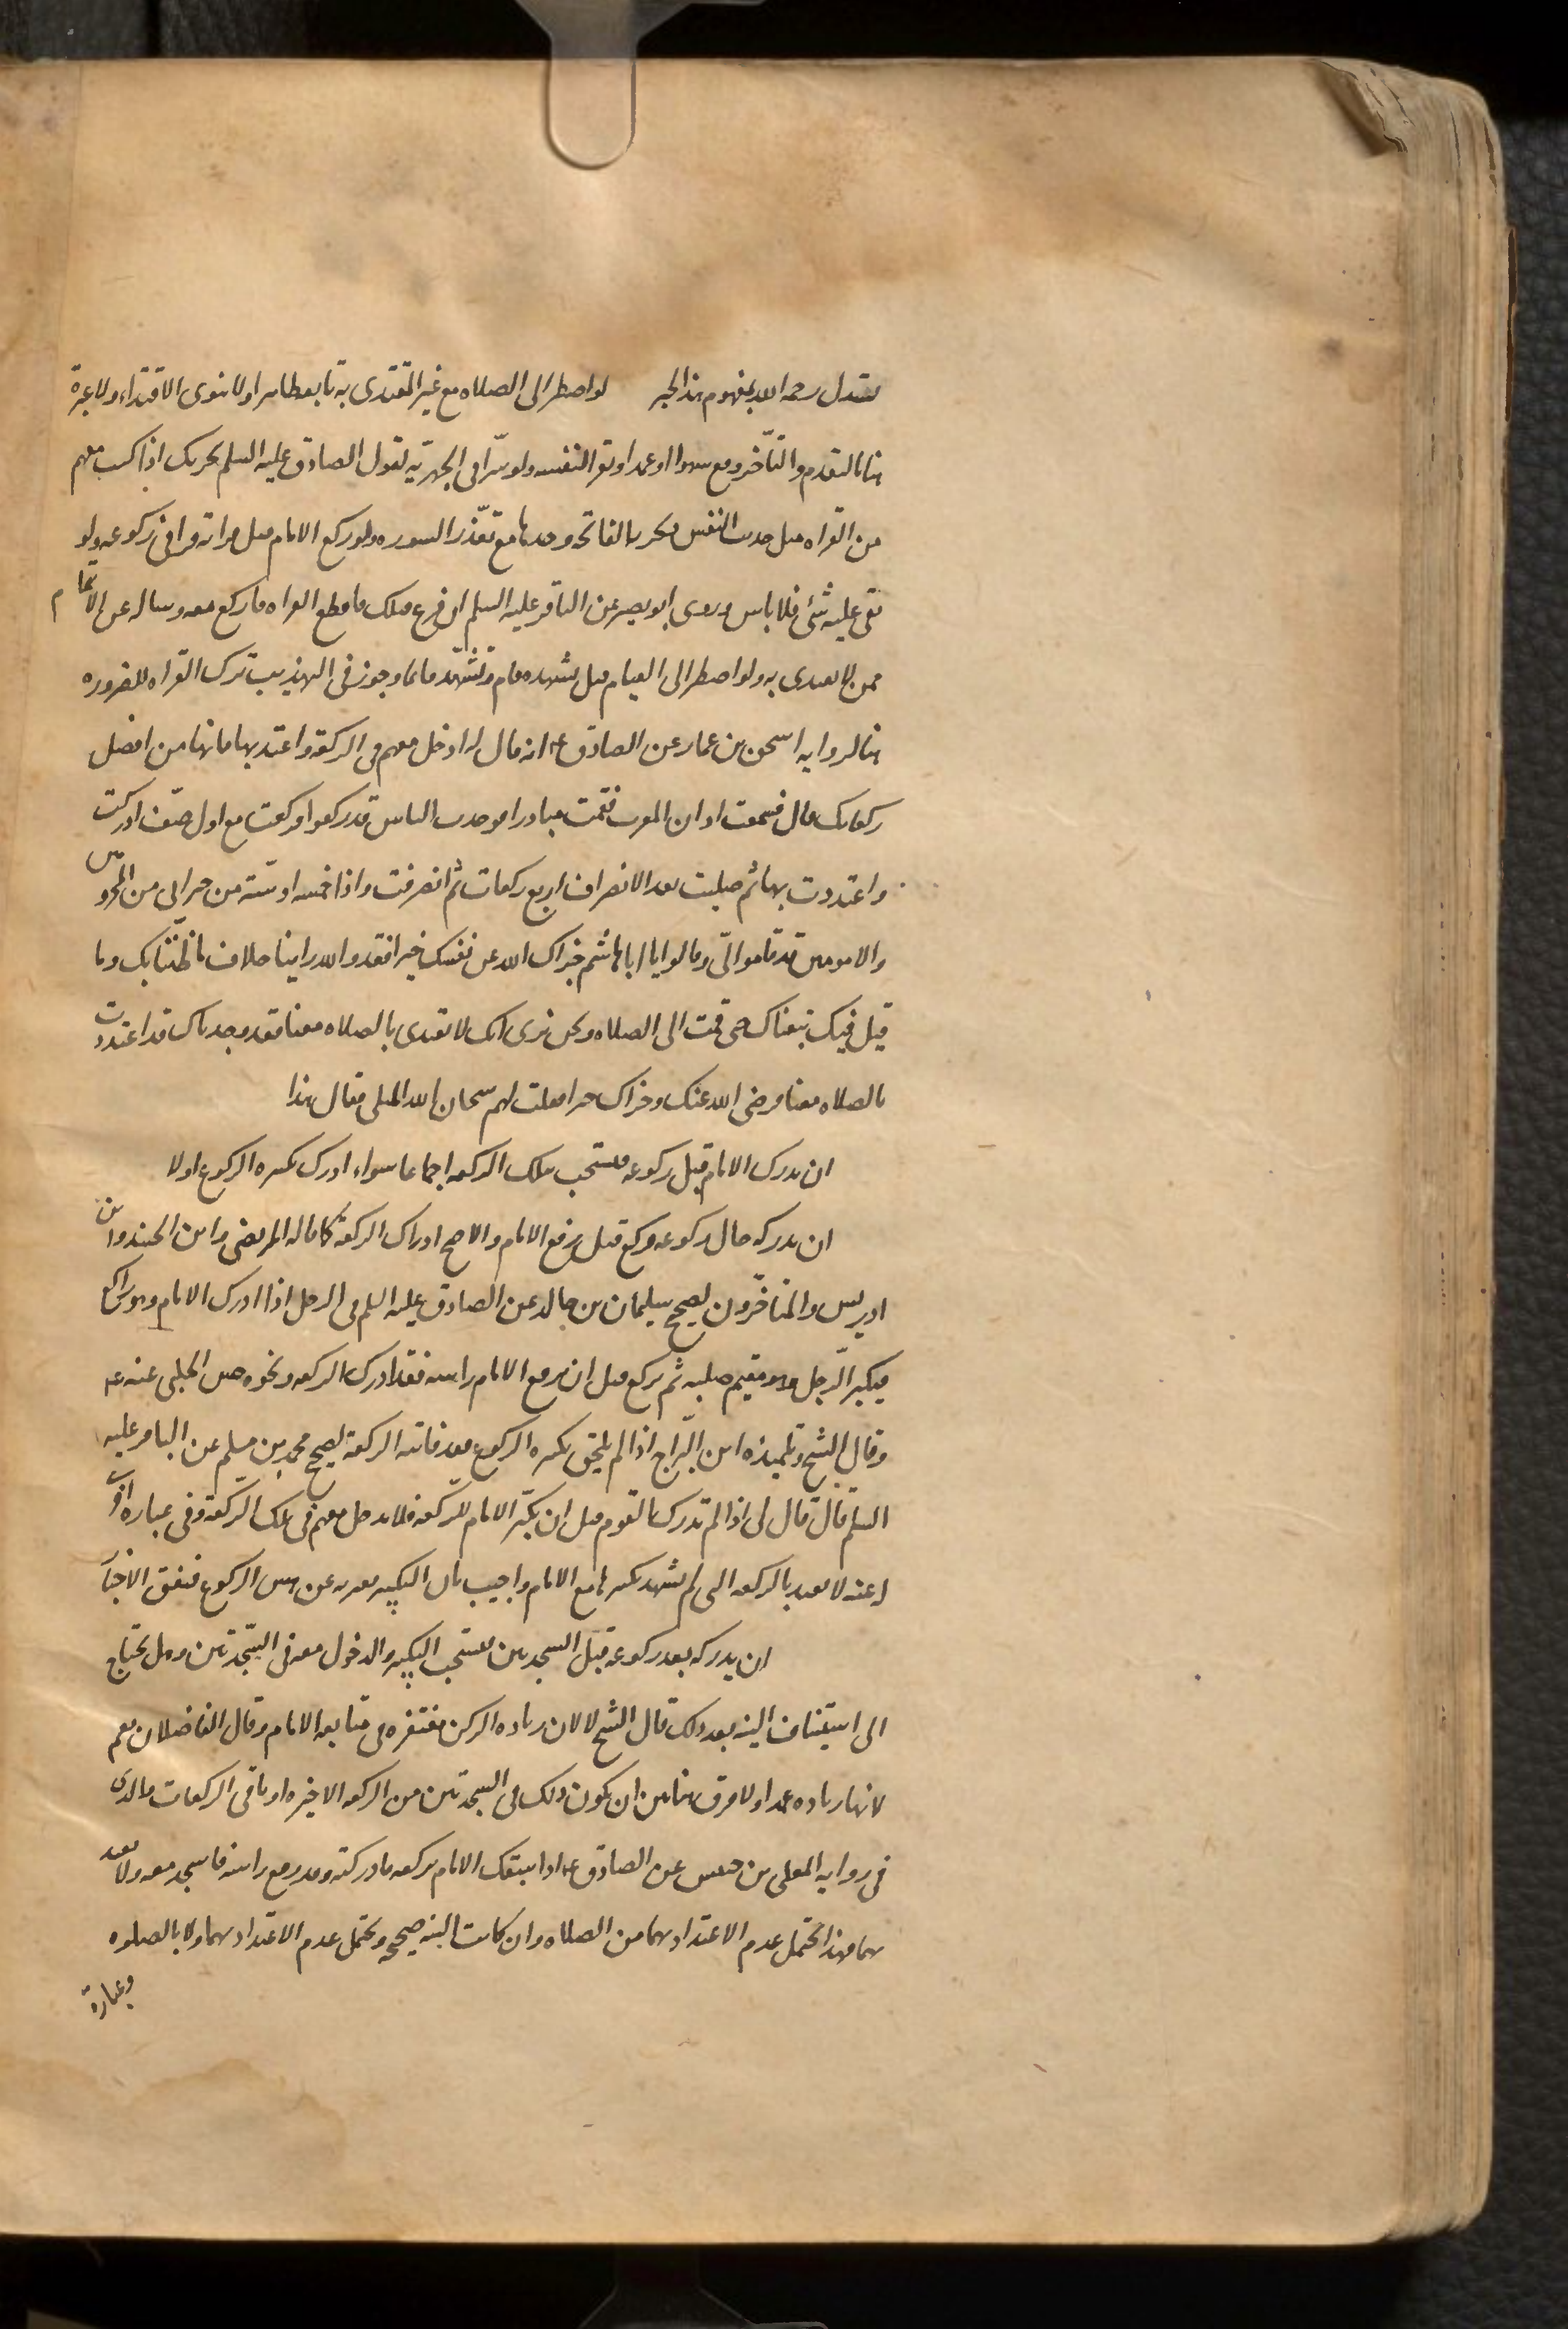 رحمه الله بمفهوم هذا الخبر لو اضطر الى الصلاه مع غير المقتدى به تابعه ظاهرا ولا ينوى الاقتداء ولا عبرة
هنا بالتقدم والتأخر ومع سهوا او عمدا ويقرأ لنفسه ولو سرّا فى الجهريّه لقول الصادق عليه السلم يجزيك اذا كنت معهم
من القراه مثل حديث النفس ويجزى الفاتحه وحدها مع تعذّر السوره ولو ركع الامام قبل قراته قرا فى ركوعه ولو
بقى عليه شئ فلا باس وروى ابو بصير عن الباقر عليه السلم ان فرغ قبلك فاقطع القراه واركع معه وساله عن الائتمام
ممن لا يقتدى به ولو اضطر الى القيام قبل تشهده قام وتشهّد قائما وجوز فى التهذيب ترك القراه للضروره
هنا لروايه اسحق بن عمار عن الصادق ع انه قال له ادخل معهم فى الركعة واعتد بها فانها من افضل
ركعاتك قال فسمعت اذان المغرب فقمت مبادرا فوجدت الناس قد ركعوا فركعت مع اول صف ادركت
واعتددت بها ثم صليت بعد الانصراف اربع ركعات ثم انصرفت واذا خمسه او ستّة من جيرانى من المخزوميين
والامويين قد قاموا الىّ وقالوا يا ابا هاشم جزاك الله عن نفسك خيرا فقد والله راينا خلاف ما ظنّنا بك وما
قيل فيك تبعناك حين قمت الى الصلاه ونحن نرى انك لا تقتدى بالصلاه معنا فقد وجدناك قد اعتددت
بالصلاه معنا فرضى الله عنك وجزاك خيرا فقلت لهم سبحان الله لمثلى يقال هذا
ان يدرك الامام قبل ركوعه فيحتسب بتلك الركعه اجماعا سواء ادرك تكبيره الركوع او لا
ان يدركه حال ركوعه وركع قبل رفع الامام والاصح ادراك الركعة كما قاله المرتضى وابن الجنيد وابن
ادريس والمتاخّرون لصحيح سليمان بن خالد عن الصادق عليه السلم فى الرجل اذا ادرك الامام وهو راكع
فيكبر الرّجل وهو مقيم صلبه ثم يركع قبل ان يرفع الامام راسه فقد ادرك الركعه ونحوه حسن الحلبى عنه ع
وقال الشيخ وتلميذه ابن البرّاج اذا لم يلحق تكبيره الركوع فقد فاتته الركعة لصحيح محمد بن مسلم عن الباقر عليه
السلم قال قال لى اذا لم تدرك القوم قبل ان يكبّر الامام للرّكعه فلا تدخل معهم فى تلك الرّكعة وفى عباره اخرى
عنه لا يعتد بالركعه التى لم يشهد تكبيرها مع الامام واجيب بان التكبير يعبر به عن نفس الركوع فيتفق الاخبار
ان يدركه بعد ركوعه قبل السجدتين فيستحب التكبير والدخول معه فى السّجدتين وهل يحتاج
الى استيناف النيه بعد ذلك قال الشيخ لا لان زياده الركن مغتفره فى متابعه الامام وقال الفاضلان نعم
لانها زياده عمدا ولا فرق هنا بين ان يكون ذلك فى السجدتين من الركعه الاخيره او باقى الركعات والذى
فى روايه المعلى بن خنيس عن الصادق ع اذا سبقك الامام بركعه فادركته وقد رفع راسه فاسجد معه ولا تعتد
بهما فهذا يحتمل عدم الاعتداد بهما من الصلاه وان كانت النيه صحيحه ويحتمل عدم الاعتداد بهما ولا بالصلوه
وعبارة